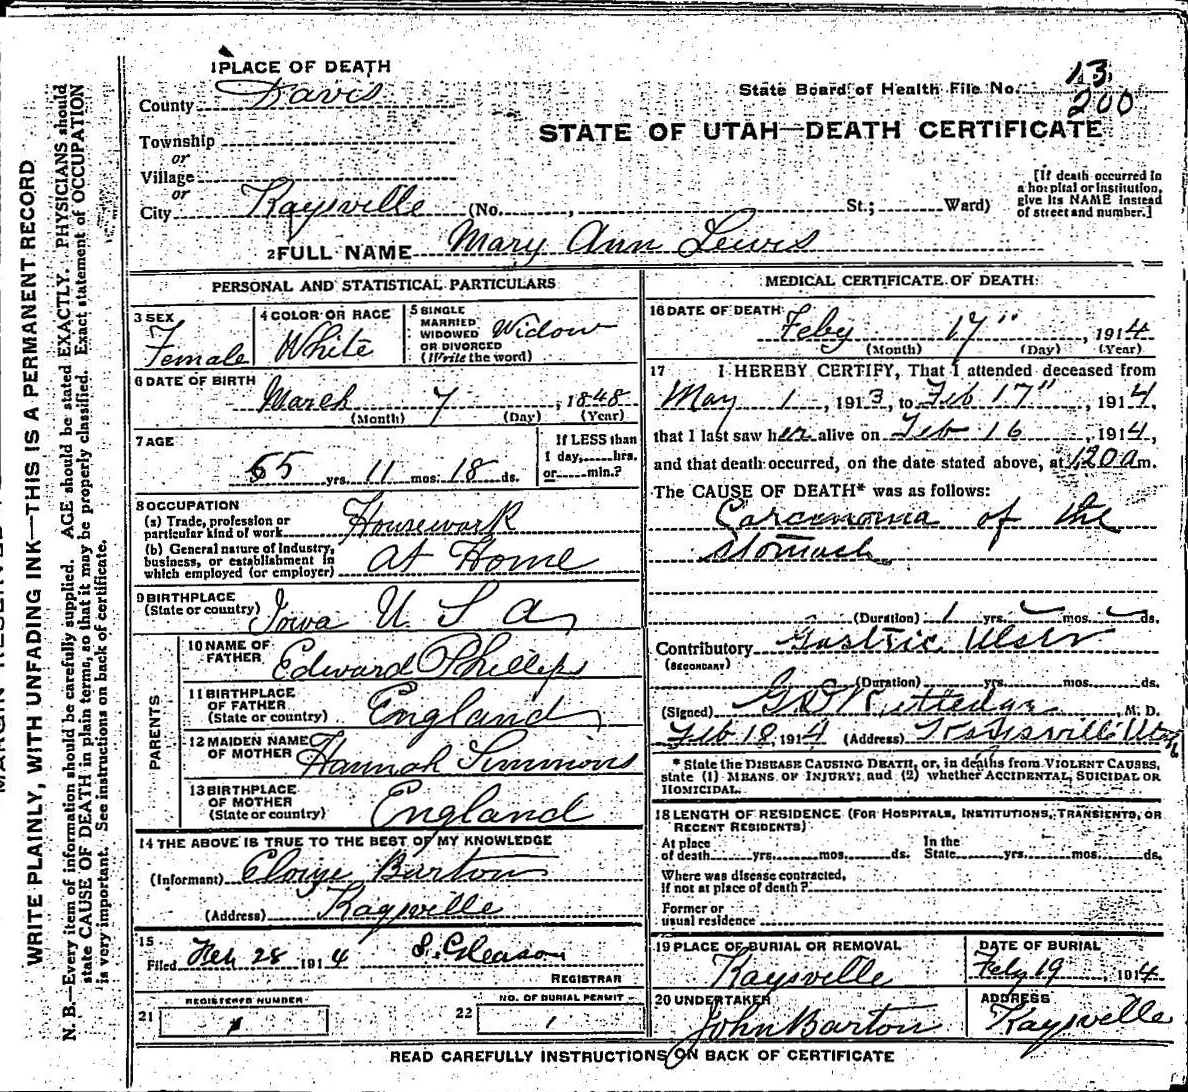 1 PLACE OF DEATH
County Davis
State Board of Health File No. 13
200
Township
or
STATE OF UTAH—DEATH CERTIFICATE
Village
or
City Kaysville (No. , St.; Ward)
[If death occurred in
a hospital or institution,
give its NAME instead
of street and number.]
2 FULL NAME Mary Ann Lewis
PERSONAL AND STATISTICAL PARTICULARS
3 SEX
Female
4 COLOR OR RACE
White
5 SINGLE
MARRIED
WIDOWED
OR DIVORCED
(Write the word)
Widow
6 DATE OF BIRTH
March 7, 1848
(Month) (Day) (Year)
7 AGE
65 yrs. 11 mos. 18 ds.
If LESS than
1 day, hrs.
or min.?
8 OCCUPATION
(a) Trade, profession or
particular kind of work Housework
(b) General nature of industry,
business, or establishment in
which employed (or employer) at Home
9 BIRTHPLACE
(State or country) Iowa U S a
PARENTS
10 NAME OF
FATHER Edward Phillips
11 BIRTHPLACE
OF FATHER
(State or country) England
12 MAIDEN NAME
OF MOTHER Hannah Simmons
13 BIRTHPLACE
OF MOTHER
(State or country) England
14 THE ABOVE IS TRUE TO THE BEST OF MY KNOWLEDGE
(Informant) Barton
(Address) Kaysville
15
Filed Feb 28 1914 S. Gleason
REGISTRAR
21 REGISTERED NUMBER
1
22 NO. OF BURIAL PERMIT
1
MEDICAL CERTIFICATE OF DEATH
16 DATE OF DEATH
Feby 17", 1914
(Month) (Day) (Year)
17 I HEREBY CERTIFY, That I attended deceased from
May 1, 1913, to Feb 17", 1914,
that I last saw her alive on Feb 16, 1914,
and that death occurred, on the date stated above, at 120 a m.
The CAUSE OF DEATH* was as follows:
Carcenoma of the
Stomach
(Duration) 1 yrs. mos. ds.
Contributory Gastric Ulser
(SECONDARY)
(Duration) yrs. mos. ds.
(Signed) M. D.
Feb 18, 1914 (Address) Utah
* State the DISEASE CAUSING DEATH, or, in deaths from VIOLENT CAUSES,
state (1) MEANS OF INJURY; and (2) whether ACCIDENTAL, SUICIDAL OR
HOMICIDAL.
18 LENGTH OF RESIDENCE (FOR HOSPITALS, INSTITUTIONS, TRANSIENTS, OR
RECENT RESIDENTS)
At place
of death yrs. mos. ds.
In the
State yrs. mos. ds.
Where was disease contracted,
if not at place of death?
Former or
usual residence
19 PLACE OF BURIAL OR REMOVAL
Kaysville
DATE OF BURIAL
Feby 19, 1914
20 UNDERTAKER
John Barton
ADDRESS
Kaysville
READ CAREFULLY INSTRUCTIONS ON BACK OF CERTIFICATE
WRITE PLAINLY, WITH UNFADING INK—THIS IS A PERMANENT RECORD
N. B.—Every item of information should be carefully supplied. AGE should be stated EXACTLY. PHYSICIANS should
state CAUSE OF DEATH in plain terms, so that it may be properly classified. Exact statement of OCCUPATION
is very important. See instructions on back of certificate.